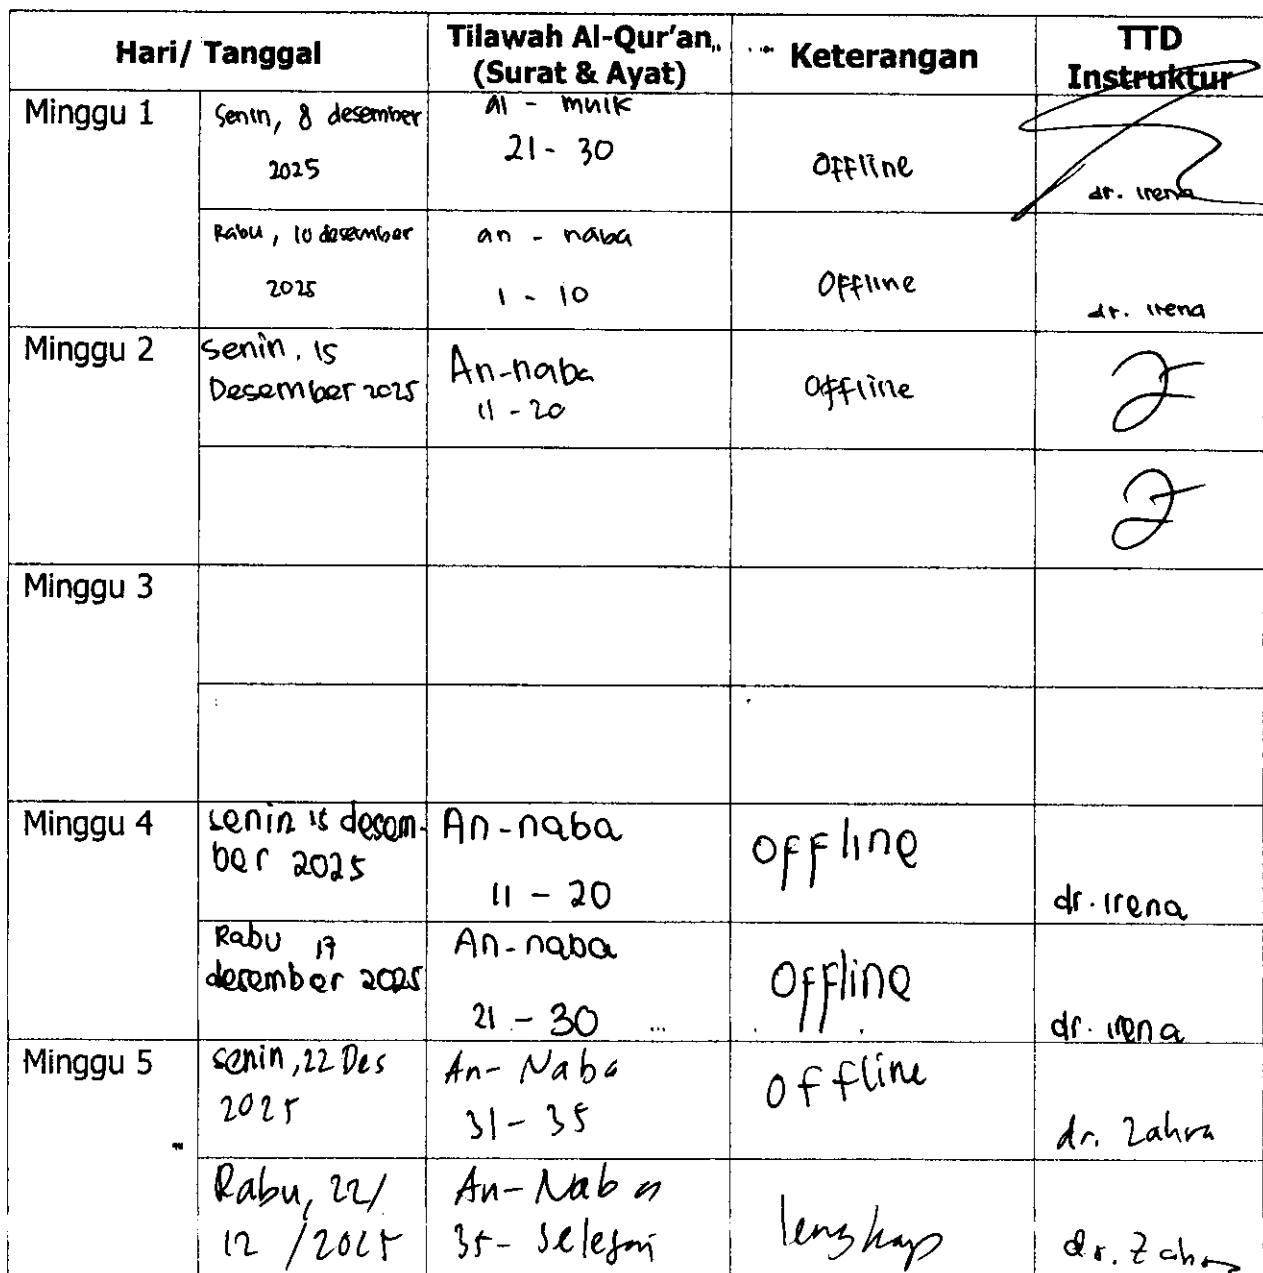 Hari/ Tanggal
Tilawah Al-Qur'an
(Surat & Ayat)
Keterangan
TTD
Instruktur
Minggu 1
Senin, 8 desember
2025
al - mulk
21 - 30
offline
dr. irena
Rabu, 10 desember
2025
an - naba
1 - 10
offline
dr. irena
Minggu 2
Senin, 15
Desember 2025
An-naba
11 - 20
offline
Minggu 3
Minggu 4
senin 15 desem-
ber 2025
An-naba
11 - 20
offline
dr. irena
Rabu 17
desember 2025
An-naba
21 - 30
offline
dr. irena
Minggu 5
senin, 22 Des
2025
An-Naba
31 - 35
offline
dr. Zahra
Rabu, 22/
12 /2025
An-Naba
35- Selesai
lengkap
dr. Zahra